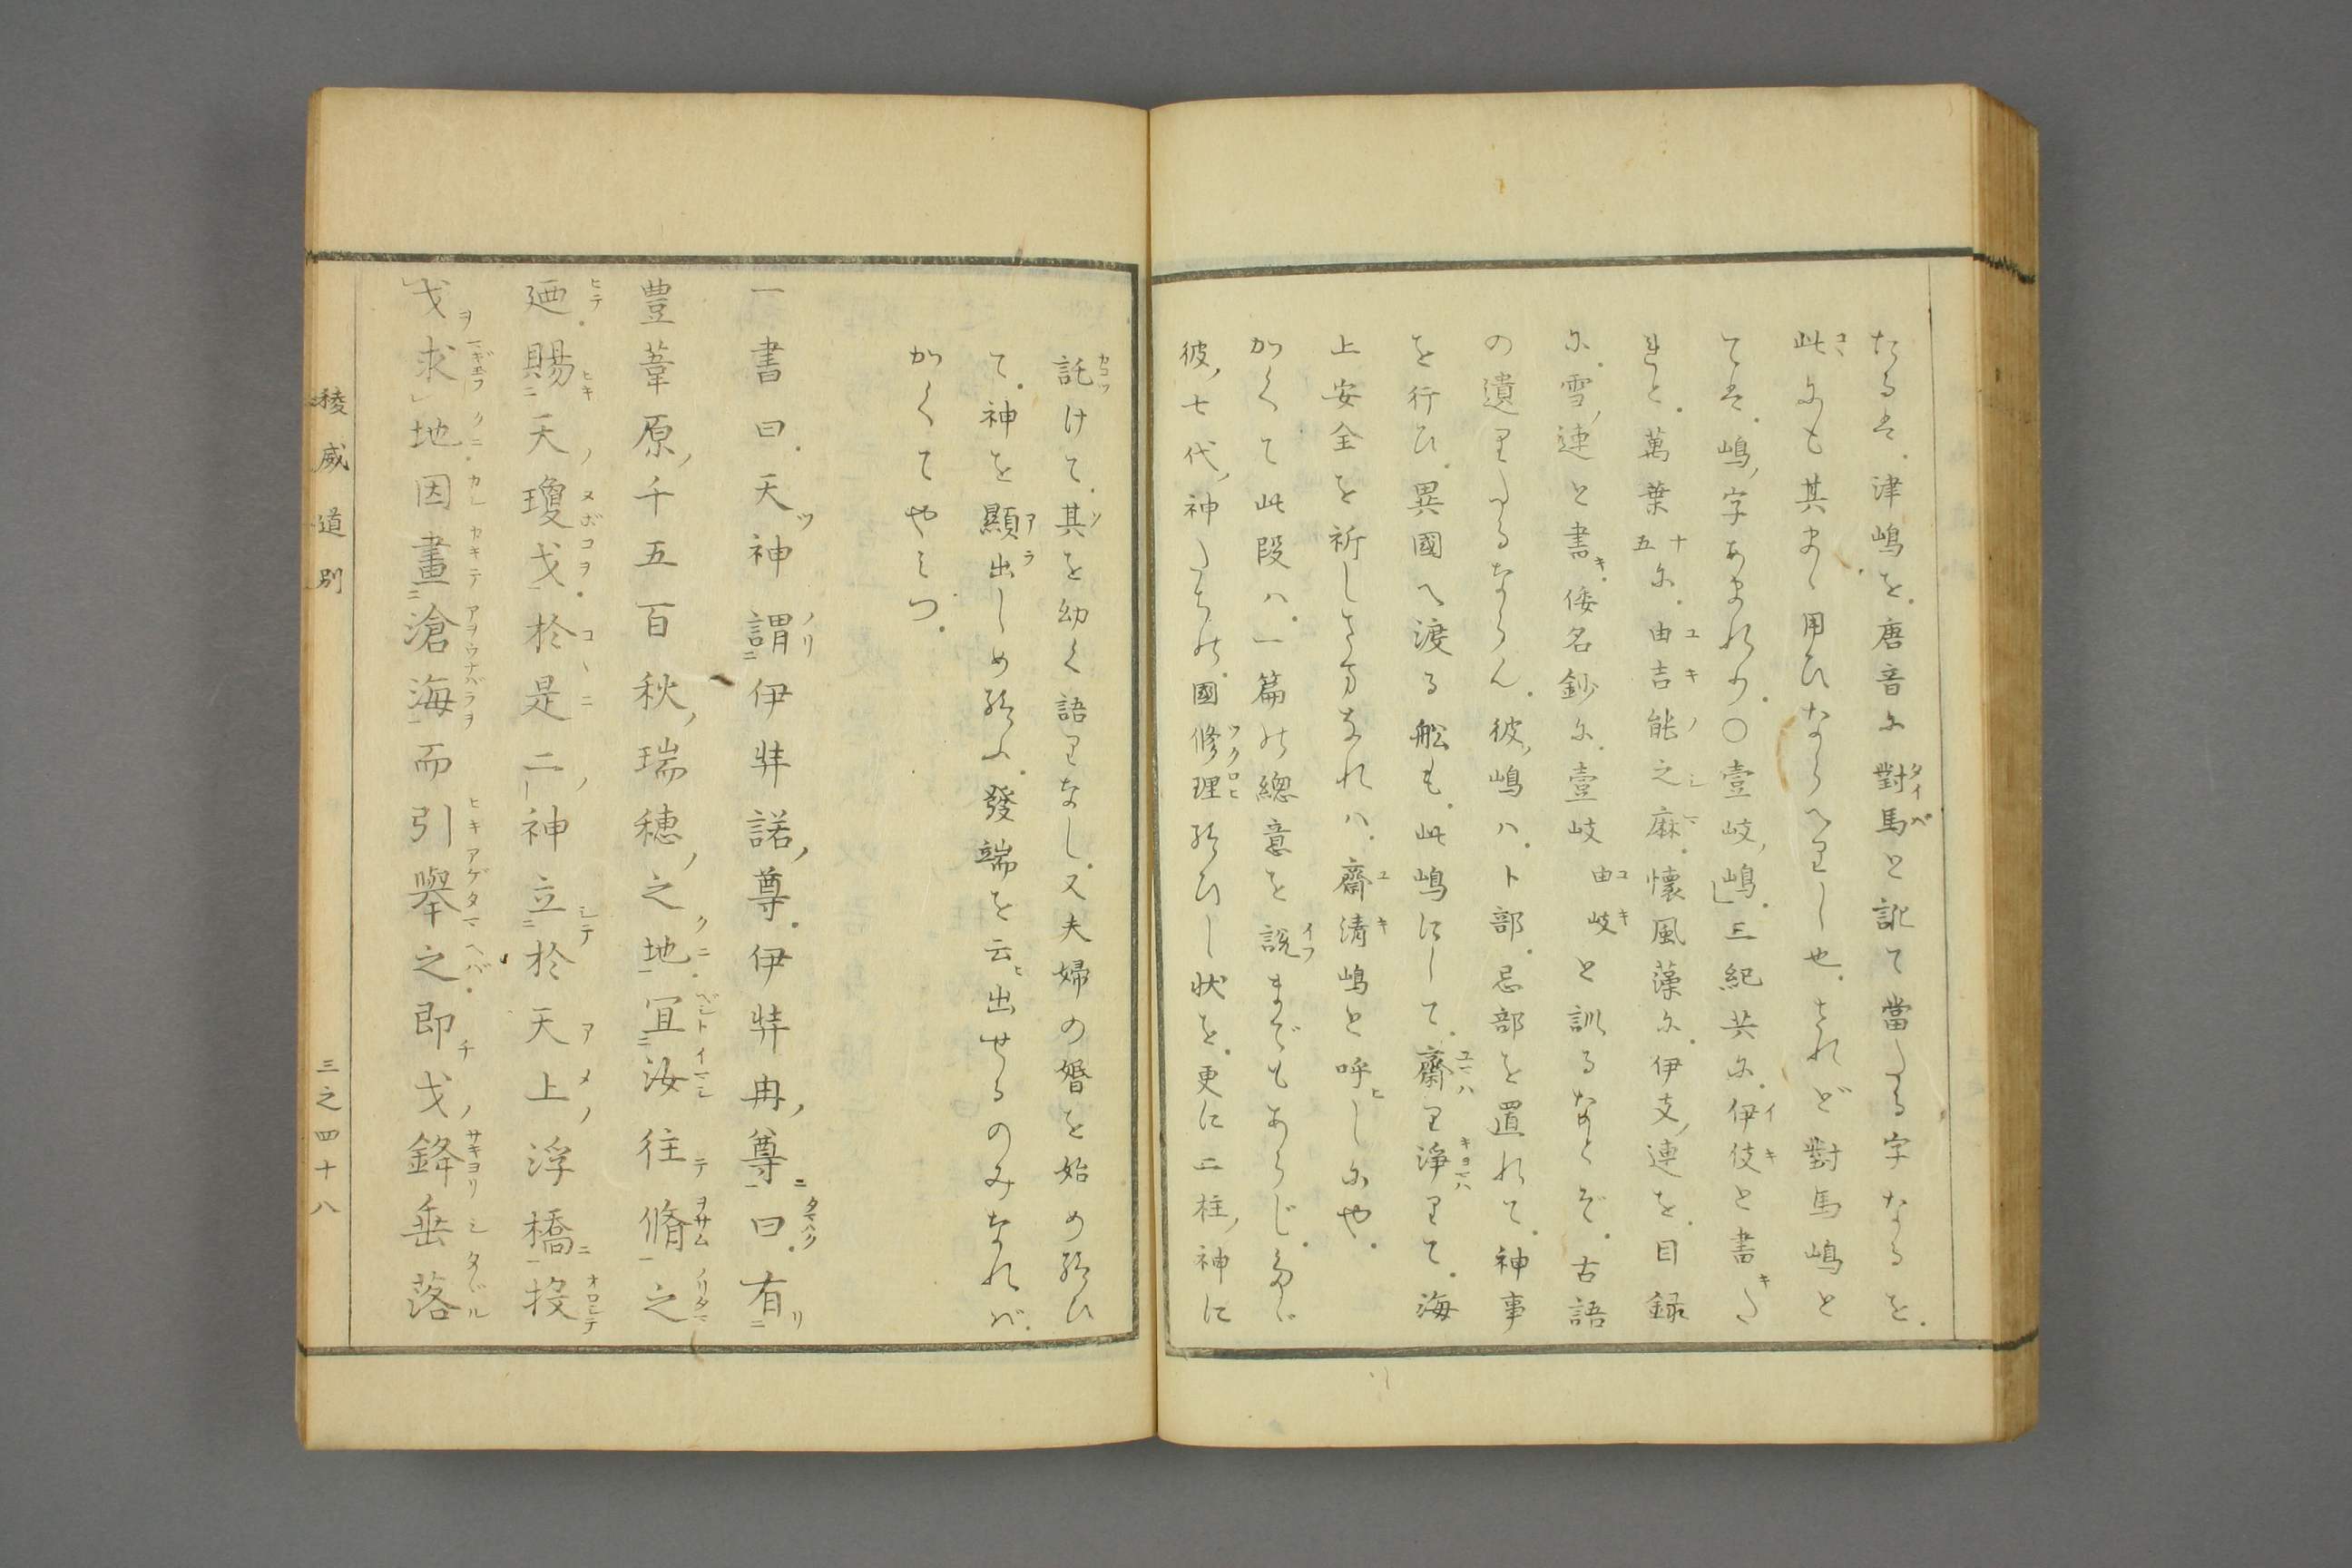 たるを津嶋を唐音に對馬と訛て當たる字なるを
此にも其まゝ用ひならへりし也されど對馬嶋と
ては嶋字あまれり〇壹岐嶋三紀共に伊伎と書た
れと萬葉十五に由吉能之麻懷風藻に伊支連を目録
に雪連と書倭名鈔に壹岐由岐と訓るなとぞ古語
の遺りたるならん彼嶋ハ卜部忌部を置れて神事
を行ひ異國へ渡る舩も此嶋にして齋り浄りて海
上安全を祈しさまなれハ齋清嶋と呼しにや
かくて此段ハ一篇の總意を説までもあらじ
彼七代神たちの國修理給ひし状を更に二柱神に
託けて其を幼く語りなし又夫婦の婚を始め給ひ
て神を顯出しめ給ふ發端を云出せるのみなれバ
かくてやみつ
一書曰天神謂伊弉諾尊伊弉冉尊曰有
豊葦原千五百秋瑞穂之地宜汝往脩之
廼賜天瓊戈於是二神立於天上浮橋投
戈求地因畫滄海而引擧之即戈鋒垂落
稜威道別
三之四十八